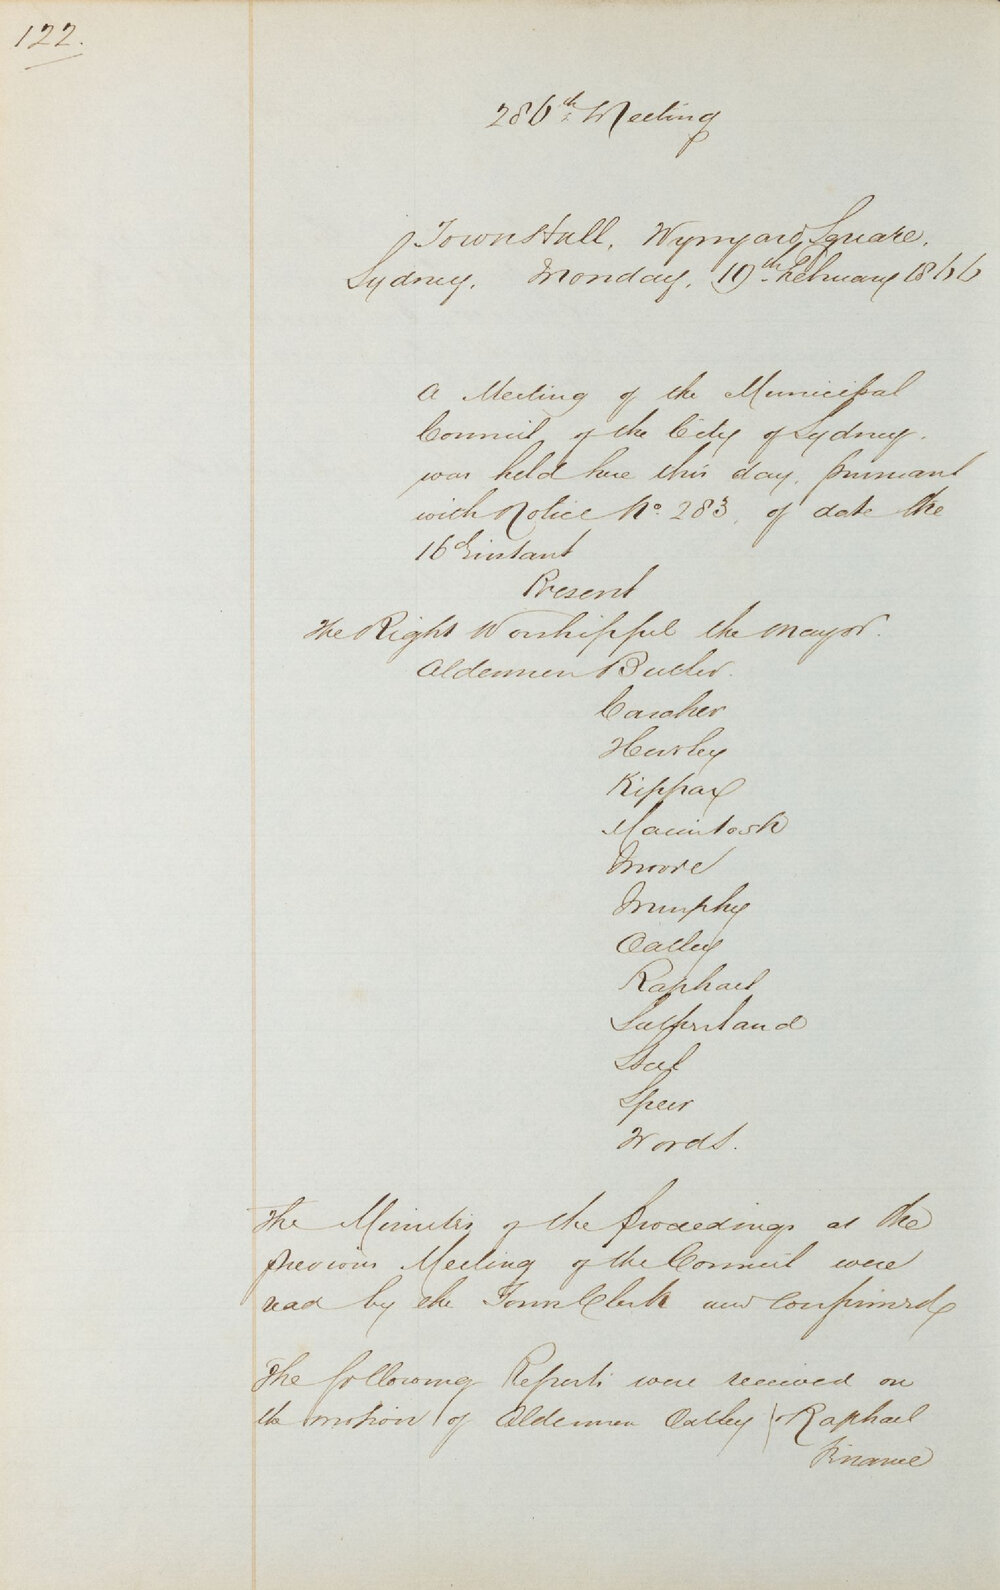 122.
286th Meeting
Town Hall, Wynyard Square,
Sydney, Monday, 19th February 1866
A Meeting of the Municipal
Council of the City of Sydney.
was held here this day, pursuant
with Notice No. 283, of date the
16th instant
Present
The Right Worshipful the Mayor.
Aldermen Butler.
Caraher
Hurley
Kippax
Macintosh
Moore
Murphy
Oatley
Raphael
Sutherland
Steel
Speer
Woods.
The Minutes of the proceedings at the
previous Meeting of the Council were
read by the Town Clerk and Confirmed
The following Reports were received on
the motion of Aldermen Oatley & Raphael
Finance